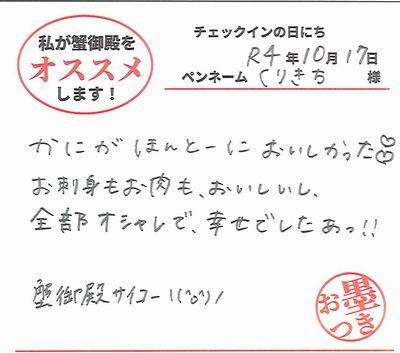 私が蟹御殿を
オススメ
します！
チェックインの日にち
R4年10月17日
ペンネーム くりきち 様
かにがほんとーにおいしかった
お刺身もお肉も、おいしいし、
全部オシャレで、幸せでしたあっ!!
蟹御殿サイコー!(^o^)/
お墨つき